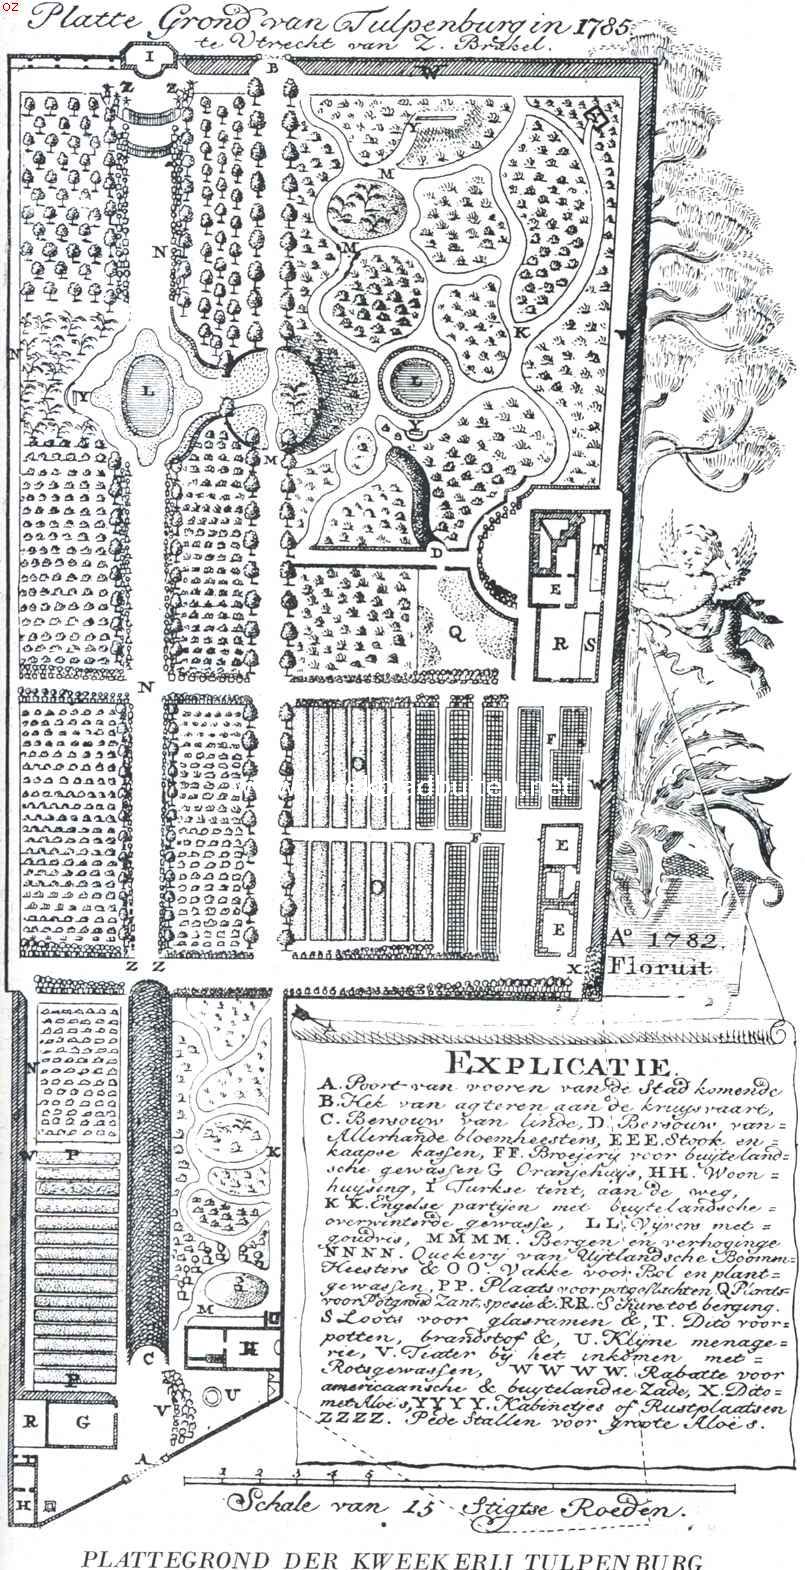 OZ
Platte Grond van Tulpenburg in 1785.
te Utrecht van Z. Brakel.
I
B
W
Z Z
Y
M
N
M
K
V
N
L
L
Y
Y
M
D
T
E
Q
R S
N
F
O
www.oudebuiten.net
W
F
E
O
E
Z Z
X
Ao 1782.
Floruit
N
W P
K
M
H
C
P
U
V
R G
A
H
EXPLICATIE.
A. Poort van vooren van de Stad komende
B. Hek van agteren aan de kruysvaart,
C. Bersouw van linde, D. Bersouw van=
Allerhande bloemheesters, EEE. Stook en=
kaapse kassen, FF. Broejerij voor buyteland=
sche gewassen G Oranjehuys, HH. Woon=
huysing, I Turkse tent, aan de weg,
K K. Engelse partijen met buytelandsche=
overwinterde gewasse, LL. Vijvers met=
goudvis, MMMM. Bergen en verhoginge
NNNN. Quekery van Uijtlandsche Boomm=
Heesters & OO. Vakke voor Bol en plant=
gewassen, PP. Plaats voor potgeslachten, Q Plaats=
voor Potgrond Zant, spesie &. RR. Schure tot berging.
S Loots voor glasramen &, T. Dito voor=
potten, brandstof &, U. Klyne menage=
rie, V. Teater bij het inkomen met=
Rotsgewassen, WWWW. Rabatte voor
americaansche & buytelandse Zade, X. Dito=
met Aloë's, YYYY. Kabinetjes of Rustplaatsen
ZZZZ. Pede Stallen voor groote Aloë s.
1 2 3 4 5
Schale van 15 Stigtse Roeden.
PLATTEGROND DER KWEEKERIJ TULPENBURG